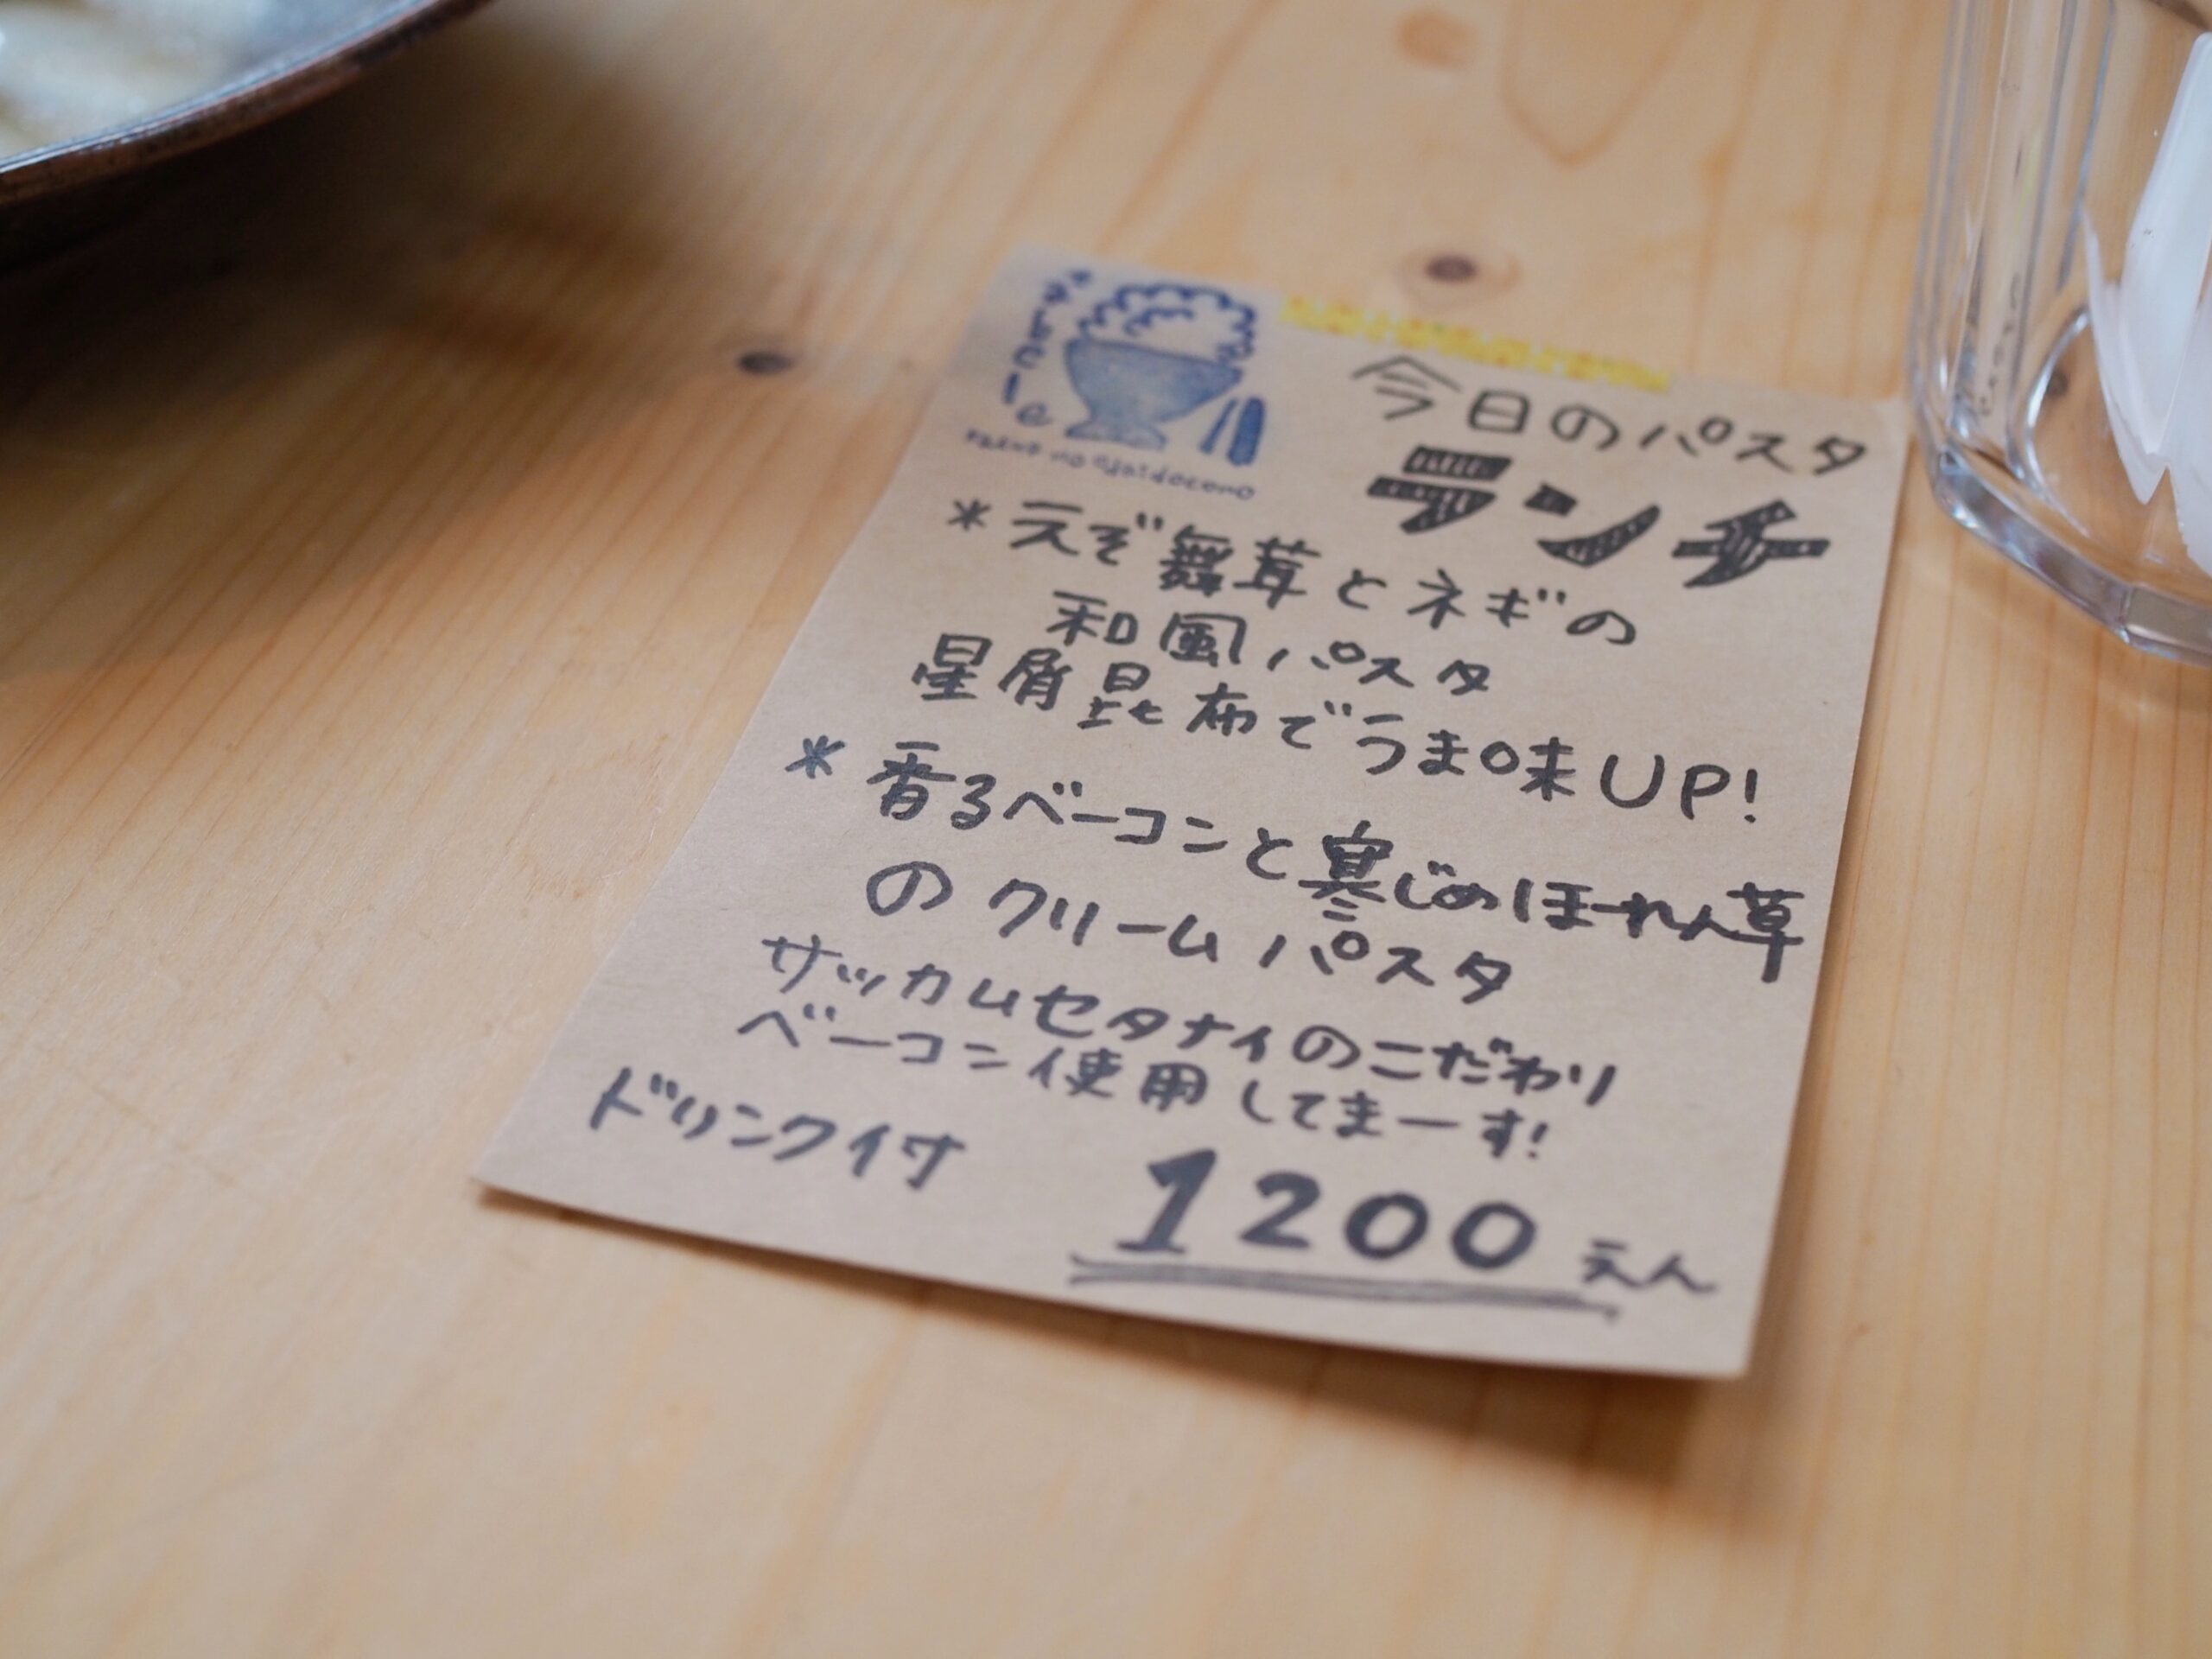 今日のパスタ
ランチ
*えぞ舞茸とネギの
和風パスタ
星屑昆布でうま味UP!
*香るベーコンと寒じめほーれん草
のクリームパスタ
サッカムセタナイのこだわり
ベーコン使用してまーす!
ドリンクイサ
1200えん